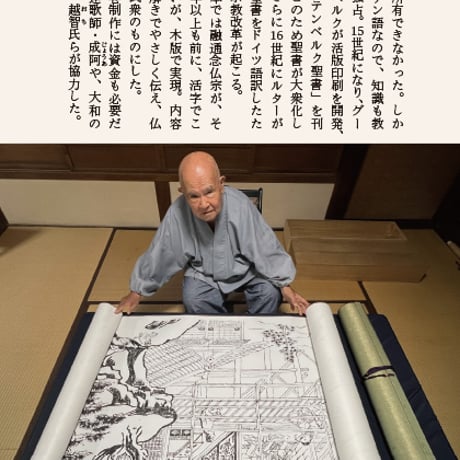 所有できなかった。しか
ン語なので、知識も教
独占。15世紀になり、グー
ルクが活版印刷を開発、
テンベルク聖書」を刊
のため聖書が大衆化し
らに16世紀にルターが
聖書をドイツ語訳したた
教改革が起こる。
では融通念仏宗が、そ
年以上も前に、活字でこ
が、木版で実現。内容
解きでやさしく伝え、仏
衆のものにした。
制作には資金も必要だ
連歌師・成阿や、大和の
越智氏らが協力した。